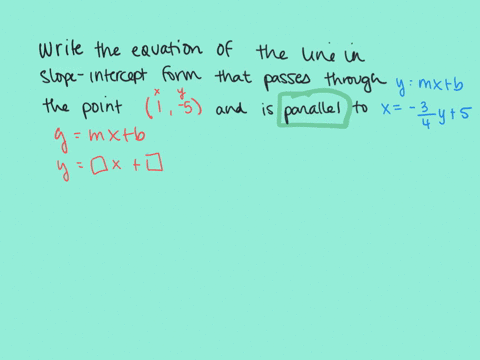 Write the equation of the line in
slope-intercept form that passes through
y = mx+b
x y
the point (1, -5) and is parallel to x = -3/4 y + 5
y = mx+b
y = □x + □